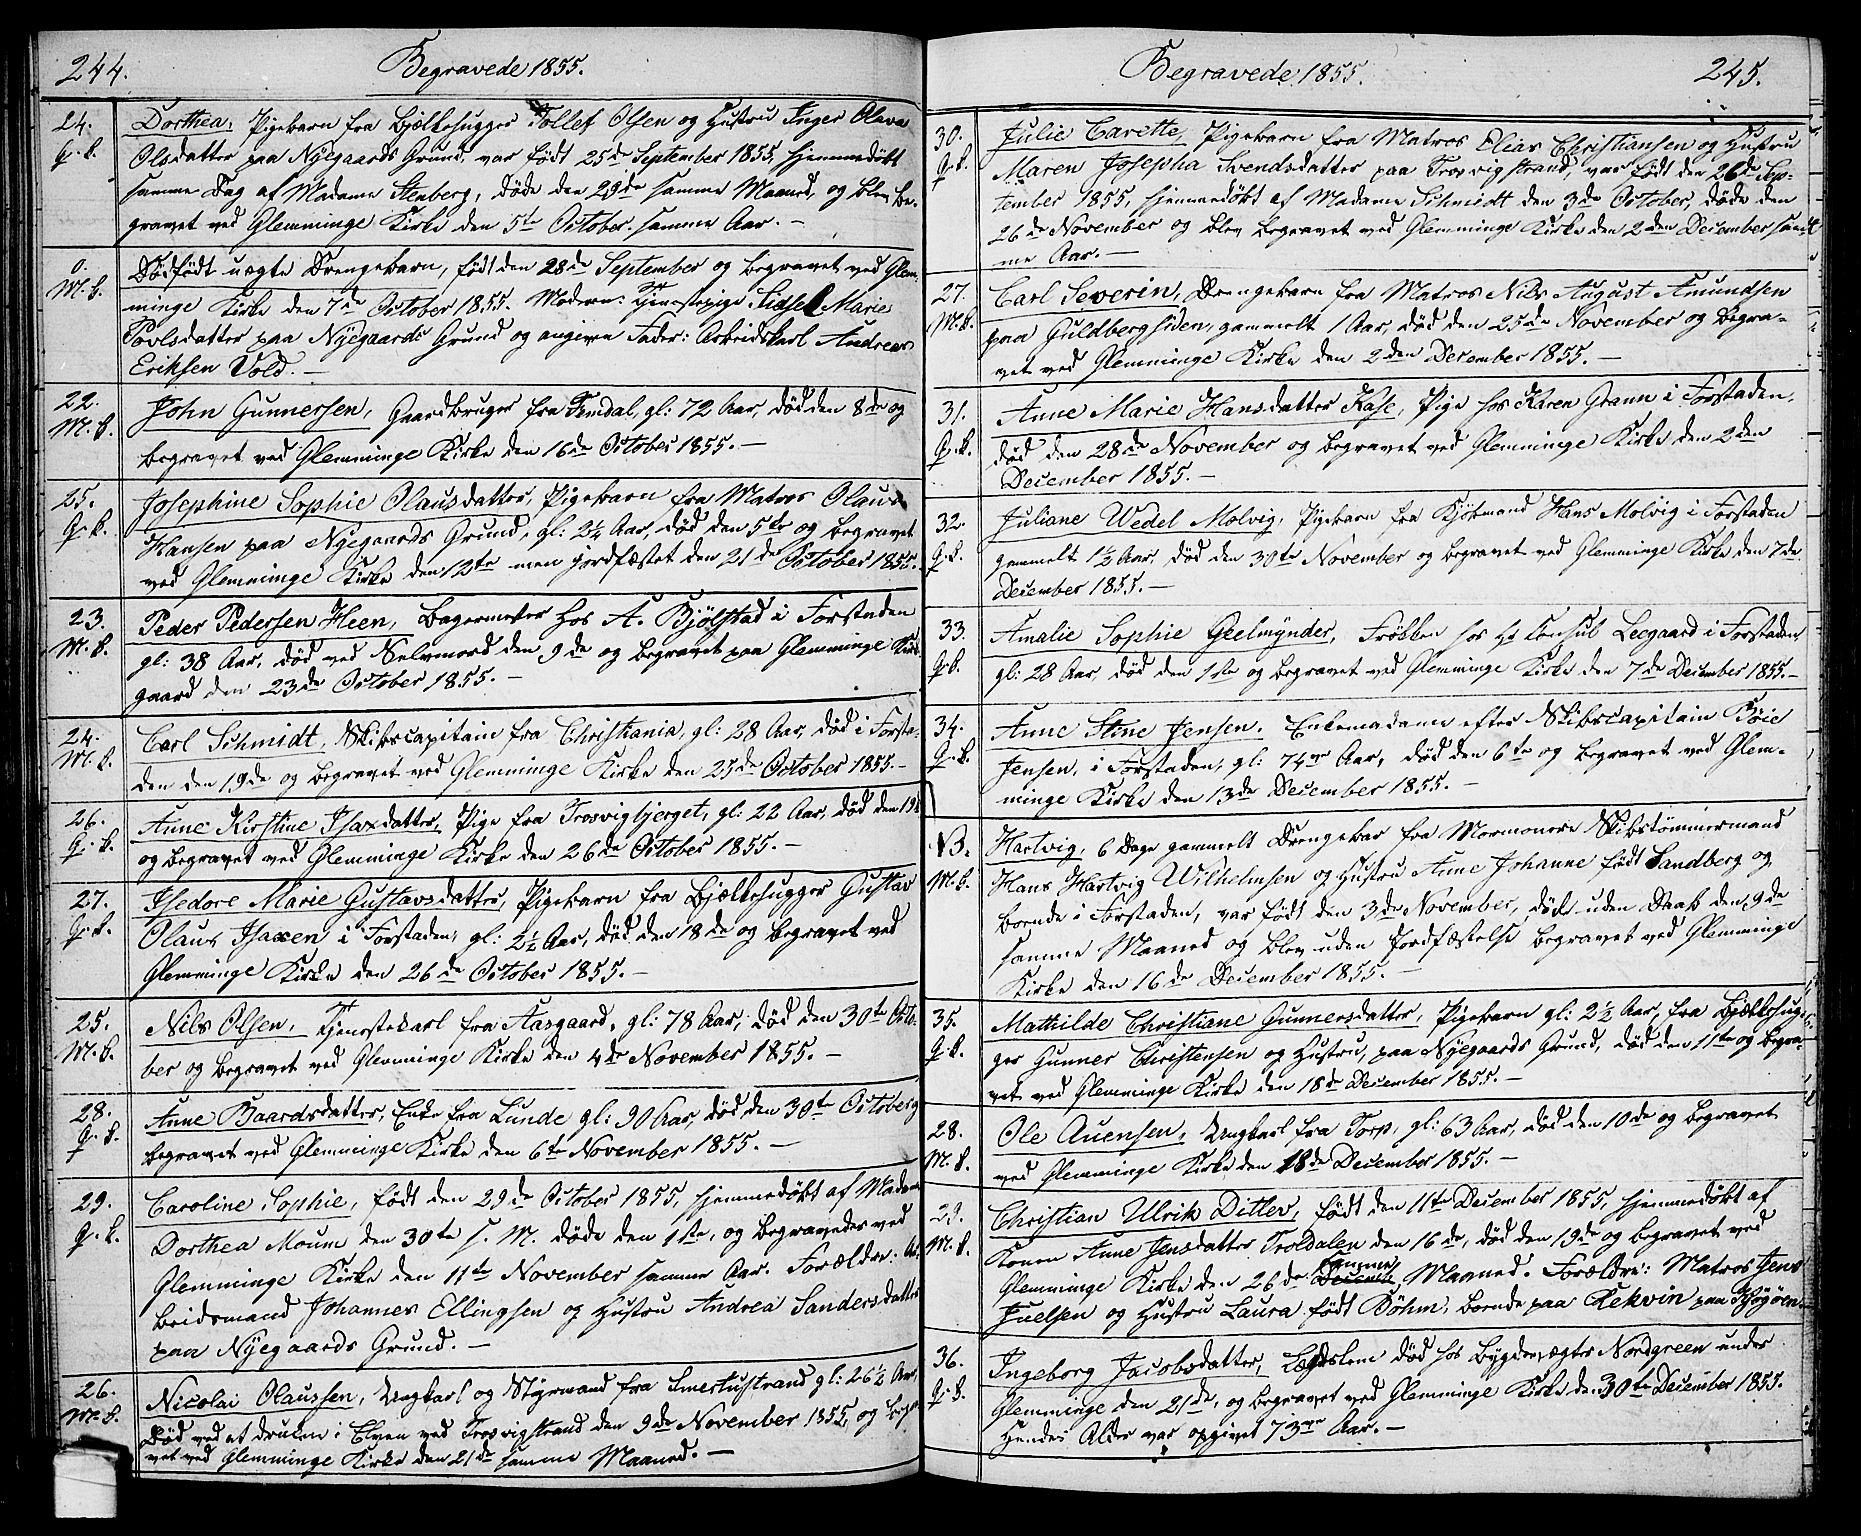 244.
Begravede 1855.
24.
Q. K.
Dorthea, Pigebarn fra Bjælkehugger Tollef Olsen og Hustru Inger Olava
Olsdatter paa Nyegaards Grund, var født 25de September 1855, hjemmedøbt
samme Dag af Madame Stenberg, døde den 29de samme Maaned, og blev be-
gravet ved Glemminge Kirke den 5te October samme Aar. —
0.
M. K.
Dødfødt uægte Drengebarn, født den 28de September og begravet ved Glem-
minge Kirke den 7de October 1855. Moderen: Tjenestepige Sidsel Marie
Povlsdatter paa Nyegaards Grund og angiven Fader: Arbeidskarl Andreas
Eriksen Vold. —
22.
M. K.
John Gunnersen, Gaardbruger fra Temdal, gl: 72 Aar, død den 8de og
begravet ved Glemminge Kirke den 16de October 1855. —
25.
Q. K.
Josephine Sophie Olausdatter, Pigebarn fra Matros Olaus
Hansen paa Nyegaards Grund, gl: 2¼ Aar, død den 5te og begravet
ved Glemminge Kirke den 12te men jordfæstet den 21de October 1855.
23.
M. K.
Peder Pedersen Heen, Bagermester hos A. Bjølstad i Forstaden
gl: 38 Aar, død ved Selvmord den 9de og begravet paa Glemminge Kirke-
gaard den 23de October 1855. —
24.
M. K.
Carl Schmidt, Skibscapitain fra Christiania, gl: 28 Aar, død i Forsta-
den den 19de og begravet ved Glemminge Kirke den 25de October 1855. —
26.
Q. K.
Anne Kirstine Isaxdatter, Pige fra Trosvigbjerget, gl: 22 Aar, død den 19de
og begravet ved Glemminge Kirke den 26de October 1855. —
27.
Q. K.
Isedore Marie Gustavsdatter, Pigebarn fra Bjælkehugger Gustav
Olaus Isaxen i Forstaden, gl: 2½ Aar, død den 18de og begravet ved
Glemminge Kirke den 26de October 1855. —
25.
M. K.
Nils Olsen, Tjenestekarl fra Aasgaard, gl: 78 Aar, død den 30te Octo-
ber og begravet ved Glemminge Kirke den 4de November 1855. —
28.
Q. K.
Anne Baardsdatter, Enke fra Lunde gl: 90 Aar, død den 30te October
begravet ved Glemminge Kirke den 6te November 1855. —
29.
Q. K.
Caroline Sophie, født den 29de October 1855, hjemmedøbt af Madam
Dorthea Moum den 30te s. M. døde den 1ste, og begravedes ved
Glemminge Kirke den 11te November samme Aar. Forældre: Ar-
beidsmand Johannes Ellingsen og Hustru Andrea Sandersdatter
paa Nyegaards Grund. —
26.
M. K.
Nicolai Olaussen, Ungkarl og Styrmand fra Smertustrand gl: 26½ Aar,
død ved at drukne i Elven ved Trosvigstrand den 9de November 1855, og begra-
vet ved Glemminge Kirke den 21de samme Maaned. —
Begravede 1855.
245.
30.
Q. K.
Julie Carette, Pigebarn fra Matros Elias Christiansen og Hustru
Maren Josepha Svendsdatter paa Trosvigstrand, var født den 26de Sep-
tember 1855, hjemmedøbt af Madame Schmidt den 3de October, døde den
26de November og blev begravet ved Glemminge Kirke den 2den December sam-
me Aar. —
27.
M. K.
Carl Severin, Drengebarn fra Matros Nils August Amundsen
paa Guldbergsiden, gammelt 1 Aar, død den 25de November og begra-
vet ved Glemminge Kirke den 2den December 1855. —
31.
Q. K.
Anne Marie Hansdatter Kase, Pige hos Karen Grann i Forstaden,
død den 28de November og begravet ved Glemminge Kirke den 2den
December 1855. —
32.
Q. K.
Juliane Wedel Molvig, Pigebarn fra Kjøbmand Hans Molvig i Forstaden
gammelt 1½ Aar, død den 30te November og begravet ved Glemminge Kirke den 7de
December 1855. —
33.
Q. K.
Amalie Sophie Geelmynder, Frøken hos Hr Consul Leegaard i Forstaden
gl: 28 Aar død den 1ste og begravet ved Glemminge Kirke den 7de December 1855. —
34.
Q. K.
Anne Stine Jensen. Enkemadame efter Skibscapitain Böie
Jensen, i Forstaden, gl: 74 Aar, død den 6te og begravet ved Glem-
minge Kirke den 13de December 1855. —
NB.
M. K.
Hartvig, 6 Dage gammelt Drengebar fra Mormoner Skibstømmermand
Hans Hartvig Wilhelmsen og Hustru Anne Johanne født Sandberg og
boende i Forstaden, var født den 3de November, døde uden Daab den 9de
samme Maaned og blev uden Jordfæstelse begravet ved Glemminge
Kirke den 16de December 1855. —
35.
Q. K.
Mathilde Christiane Gunnersdatter, Pigebarn gl: 2½ Aar, fra Bjælkehug-
ger Gunner Christensen og Hustru, paa Nyegaards Grund, død den 11te og begra-
vet ved Glemminge Kirke den 18de December 1855. —
28.
M. K.
Ole Auensen, Ungkarl fra Torp, gl: 63 Aar, død den 10de og begravet
ved Glemminge Kirke den 18de December 1855. —
29.
M. K.
Christian Ulrik Ditlev, født den 11te December 1855, hjemmedøbt af
Konen Anne Jensdatter Troldalen den 16de, død den 19de og begravet ved
Glemminge Kirke den 26de samme Maaned. Forældre: Matros Jens
Juelsen og Hustru Laura født Böhm, boende paa Rekvin paa Kjøgøen.
36.
Q. K.
Ingeborg Jacobsdatter, Lægdslem død hos Bygdevægter Nordgreen under
Glemminge den 21de, og begravet ved Glemminge Kirke den 30te December 1855.
Hendes Alder var opgivet 73 Aar. —